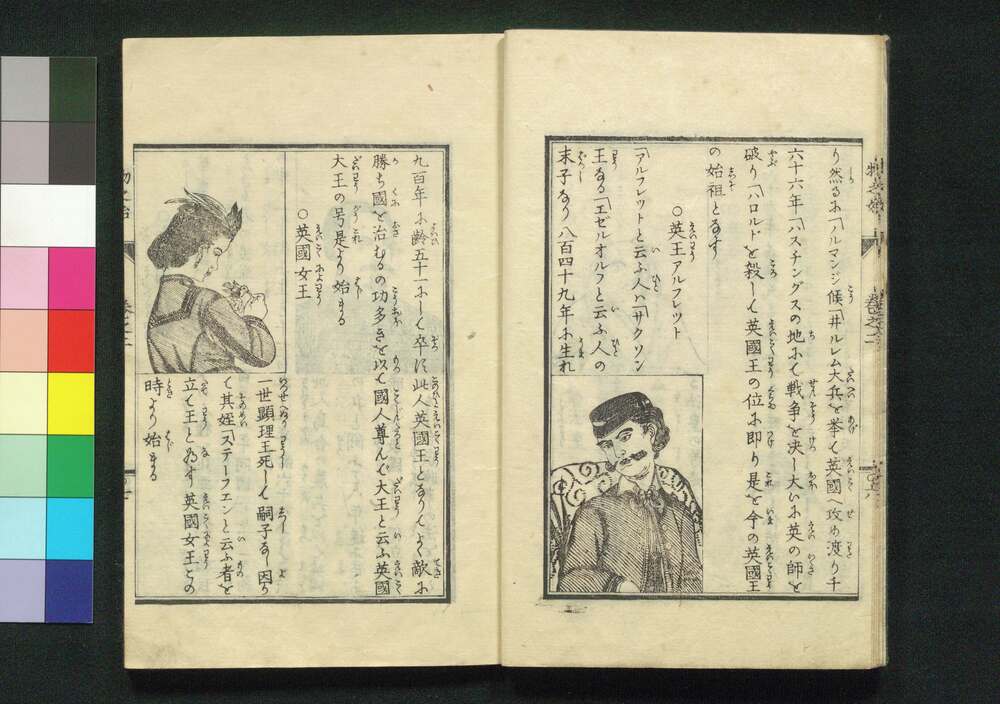 り然るに「ノルマンジ候「井ルレム大兵を挙て英國へ攻め渡り千
六十六年「ハスチングスの地にて戦争を決し大いに英の師を
破り「ハロルド」を殺して英國王の位に即り是を今の英國王
の始祖となす
○英王アルフレット
「アルフレットと云ふ人ハ「サクソン
王なる「エゼルオルフと云ふ人の
末子なり八百四十九年に生れ
九百年に齢五十一にして卒す此人英國王となりてよく敵に
勝ち國を治むるの功多きを以て國人尊んで大王と云ふ英國
大王の号是より始まる
○英國女王
一世顕理王死して嗣子なし因り
て其姪「ステーフエンと云ふ者を
立て王と為す英國女王との
時より始まる